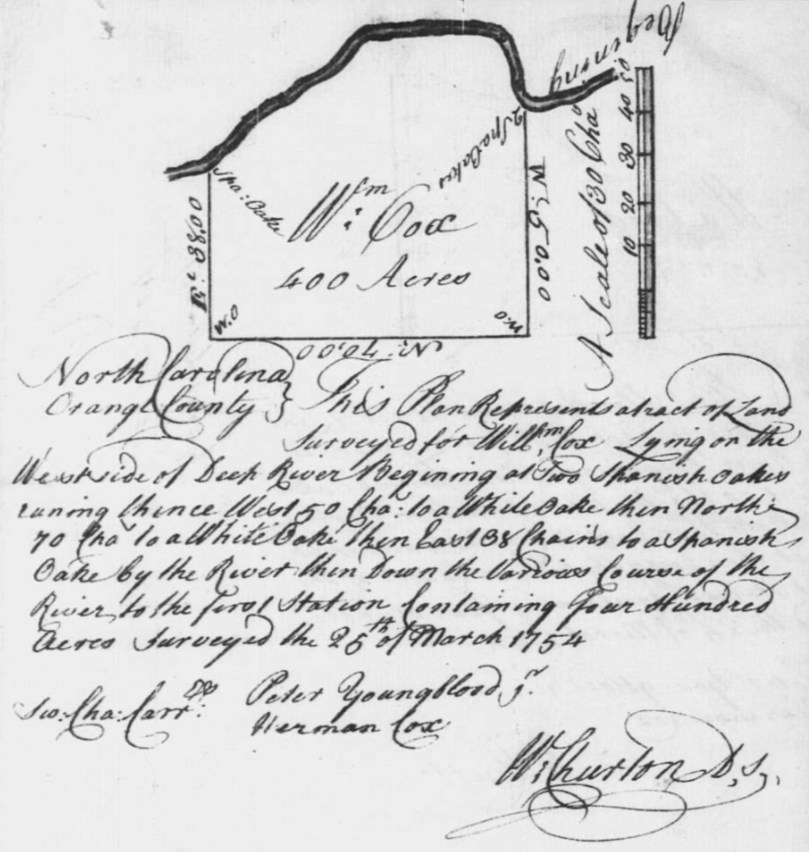 Begining
50
40
30
20
10
A Scale of 30 Cha
2 Spa: Oakes
Spa: Oake
Wm Cox
400 Acres
W: 50.00
E: 38.00
W:O
W:O
N: 70.00
North Carolina
Orange County } This Plan Represents a tract of Land
Surveyed for Willm Cox Lying on the
West side of Deep River Begining at Two Spanish Oakes
runing thence West 50 Cha: to a White Oake then North
70 Cha to a White Oake then East 38 Chains to a Spanish
Oake by the River then Down the Various Course of the
River to the first Station Containing four Hundred
Acres Surveyed the 25th of March 1754
Sw: Cha: Carrs: Peter Youngblood Jr.
Herman Cox
W: Churton D, S,